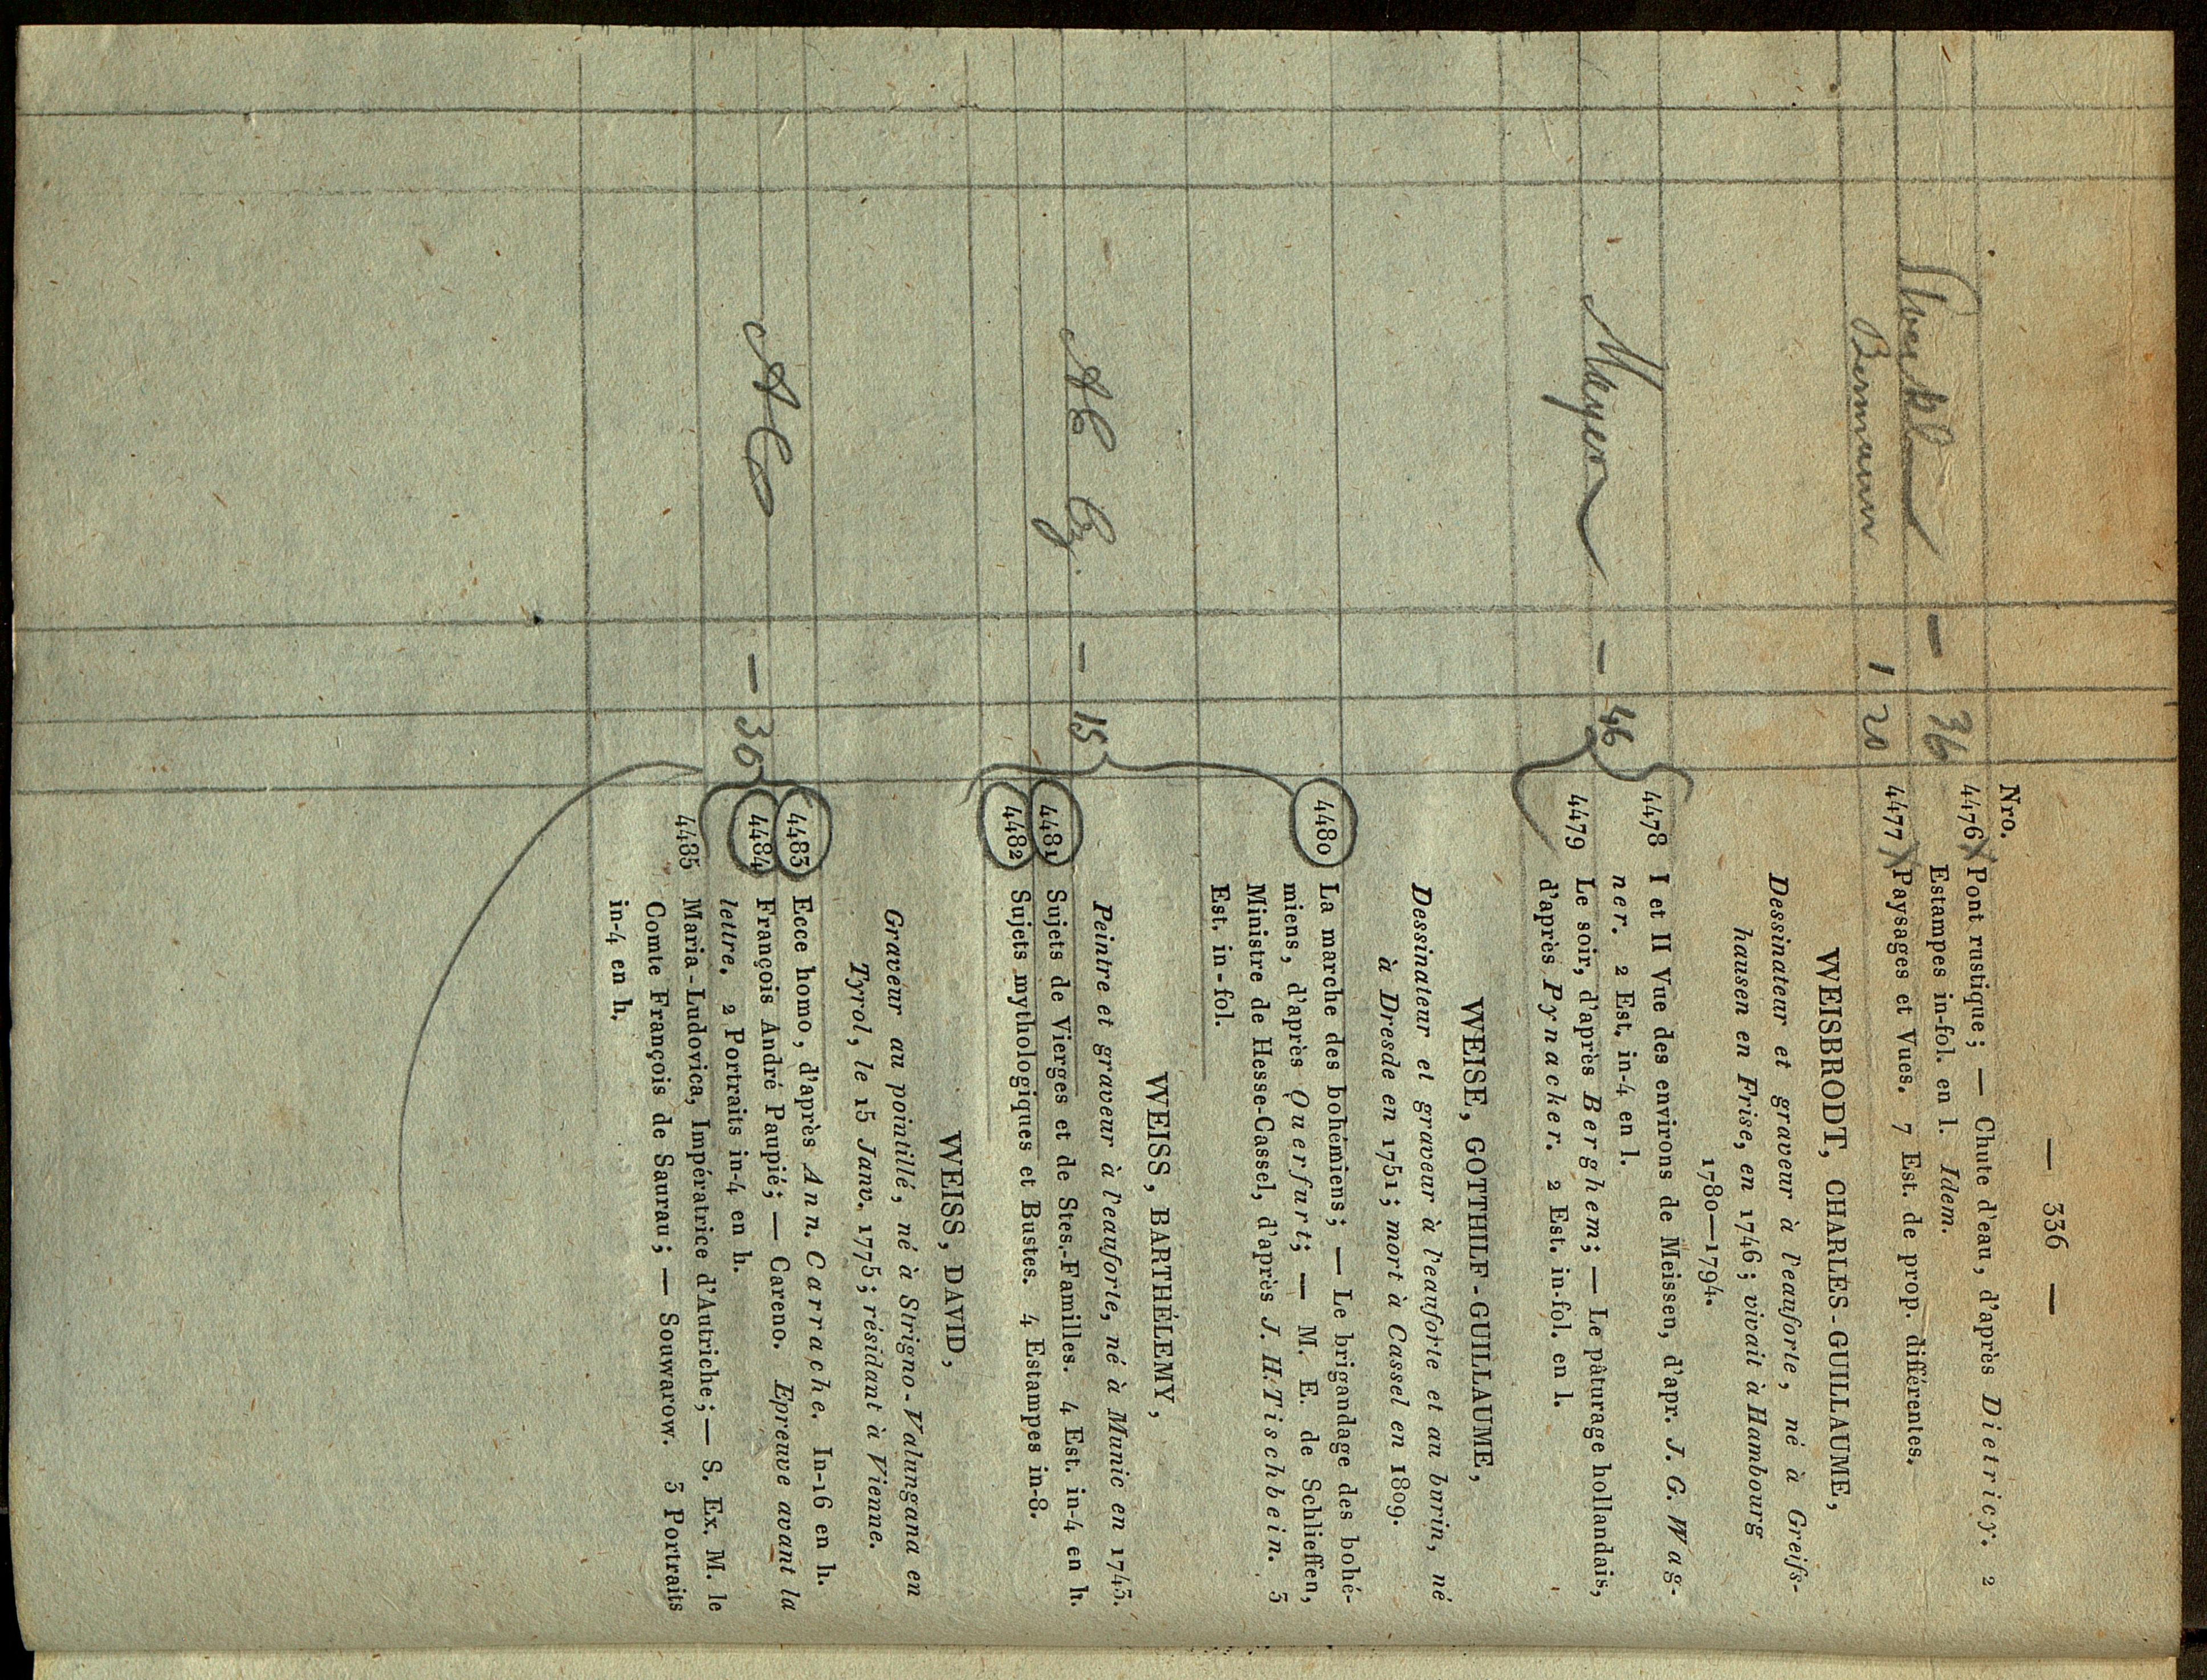 — 336 —
Nro.
— 36 4476 Pont rustique; — Chute d'eau, d'après Dietricy. 2
Estampes in-fol. en l. Idem.
Bermann 1 20 4477 Paysages et Vues. 7 Est. de prop. différentes.
WEISBRODT, CHARLES-GUILLAUME,
Dessinateur et graveur à l'eauforte, né à Greifs-
hausen en Frise, en 1746; vivait à Hambourg
1780—1794.
4478 I et II Vue des environs de Meissen, d'apr. J. G. Wag-
ner. 2 Est. in-4 en l.
Meyer — 46
4479 Le soir, d'après Berghem; — Le pâturage hollandais,
d'après Pynacker. 2 Est. in-fol. en l.
WEISE, GOTTHILF-GUILLAUME,
Dessinateur et graveur à l'eauforte et au burin, né
à Dresde en 1751; mort à Cassel en 1809.
4480 La marche des bohémiens; — Le brigandage des bohé-
miens, d'après Querfurt; — M. E. de Schlieffen,
Ministre de Hesse-Cassel, d'après J. H. Tischbein. 3
Est. in-fol.
WEISS, BARTHÉLEMY,
Peintre et graveur à l'eauforte, né à Munic en 1743.
— 15
4481 Sujets de Vierges et de Stes.-Familles. 4 Est. in-4 en h.
4482 Sujets mythologiques et Bustes. 4 Estampes in-8.
WEISS, DAVID,
Graveur au pointillé, né à Strigno-Valungana en
Tyrol, le 15 Janv. 1775; résidant à Vienne.
4483 Ecce homo, d'après Ann. Carrache. In-16 en h.
— 30 4484 François André Paupié; — Careno. Epreuve avant la
lettre. 2 Portraits in-4 en h.
4485 Maria-Ludovica, Impératrice d'Autriche; — S. Ex. M. le
Comte François de Saurau; — Souwarow. 3 Portraits
in-4 en h.